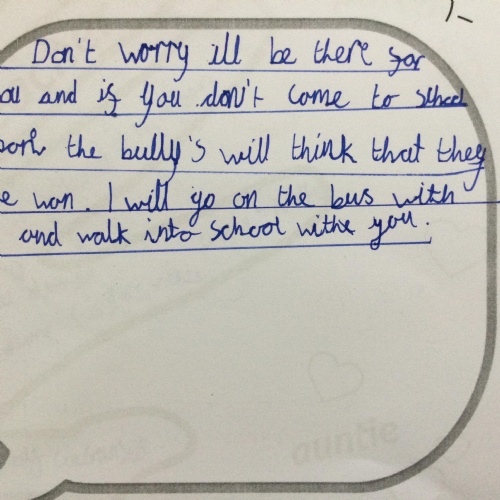 Don't worry ill be there for
ou and if you don't come to school
the bully's will think that they
e won. I will go on the bus with
and walk into school withe you.
auntie